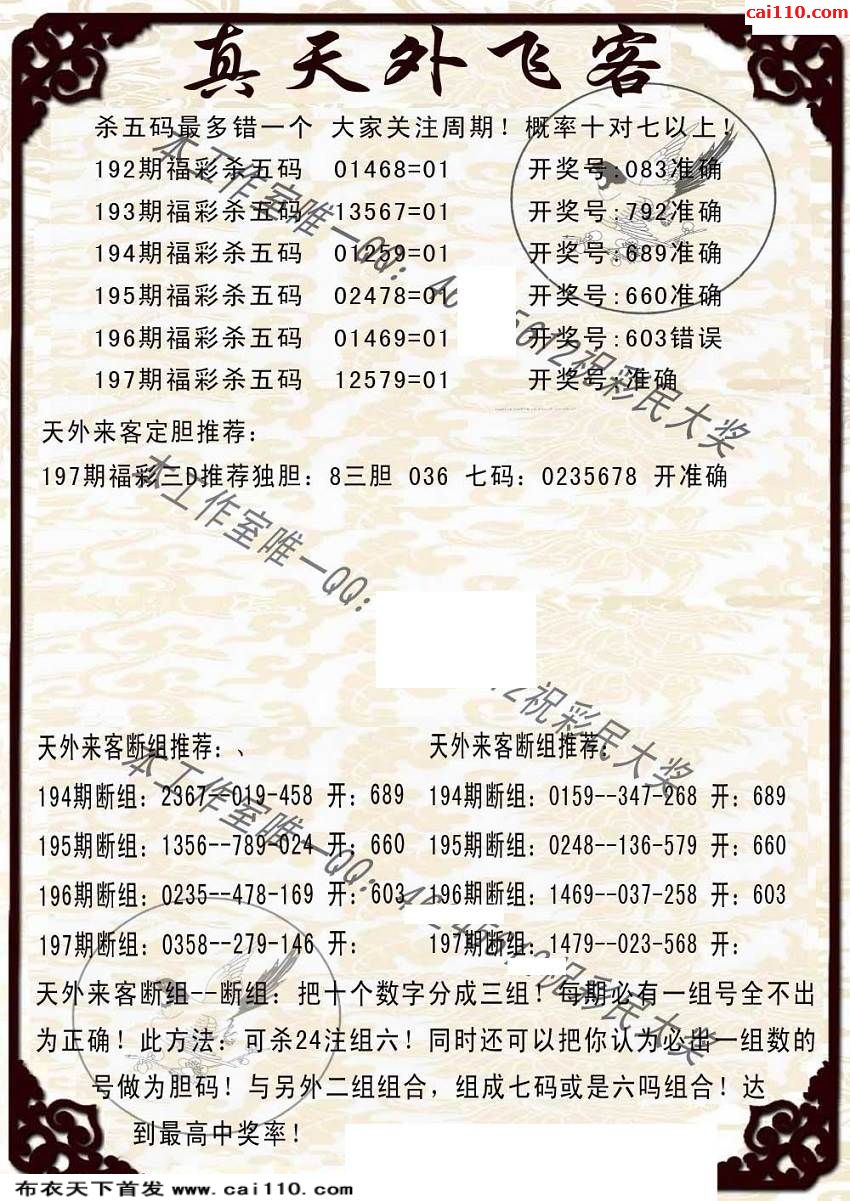 cai110.com
真天外飞客
杀五码最多错一个 大家关注周期！概率十对七以上！
192期福彩杀五码 01468=01 开奖号:083准确
193期福彩杀五码 13567=01 开奖号:792准确
194期福彩杀五码 01259=01 开奖号:689准确
195期福彩杀五码 02478=01 开奖号:660准确
196期福彩杀五码 01469=01 开奖号:603错误
197期福彩杀五码 12579=01 开奖号:准确
本工作室唯一QQ: 祝彩民大奖
天外来客定胆推荐：
197期福彩三D推荐独胆：8三胆 036 七码：0235678 开准确
本工作室唯一QQ: 祝彩民大奖
天外来客断组推荐：、 天外来客断组推荐：
194期断组：2367--019-458 开：689 194期断组：0159--347-268 开：689
195期断组：1356--789-024 开：660 195期断组：0248--136-579 开：660
196期断组：0235--478-169 开：603 196期断组：1469--037-258 开：603
197期断组：0358--279-146 开： 197期断组：1479--023-568 开：
本工作室唯一QQ: 祝彩民大奖
天外来客断组--断组：把十个数字分成三组！每期必有一组号全不出
为正确！此方法：可杀24注组六！同时还可以把你认为必出一组数的
号做为胆码！与另外二组组合，组成七码或是六吗组合！达
到最高中奖率！
布衣天下首发 www.cai110.com